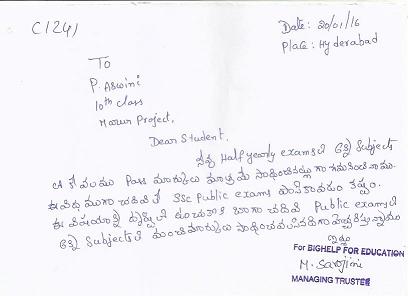 C1241
Date: 20/01/16
Place: Hyderabad
To
P. Aswini
10th class
Marur Project.
Dear Student,
నీవు Half yearly exams లో అన్ని Subjects
లో కేవలము Pass మార్కులు మాత్రమే సాధించినట్లుగా గమనించినాము.
ఈ విధముగా చదివితే SSC Public exams పాస్ కావడం కష్టం.
ఈ విషయాన్ని దృష్టిలో ఉంచుకొని బాగా చదివి Public exams లో
అన్ని Subjects లో మంచి మార్కులు సాధించవలసినదిగా హెచ్చరిస్తున్నాము
ఇట్లు
For BIGHELP FOR EDUCATION
M. Sarojini
MANAGING TRUSTEE